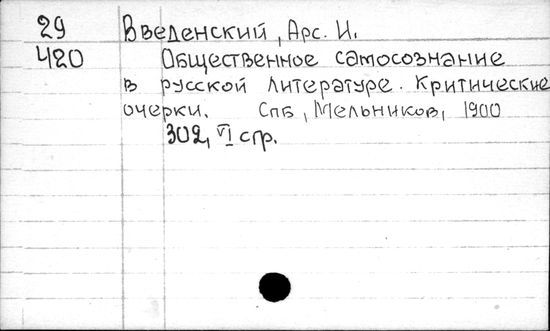 29 Введенский, Арс. И.
420 Общественное самосознание
в русской литературе. Критические
очерки. Спб, Мельников, 1900
302, VI стр.